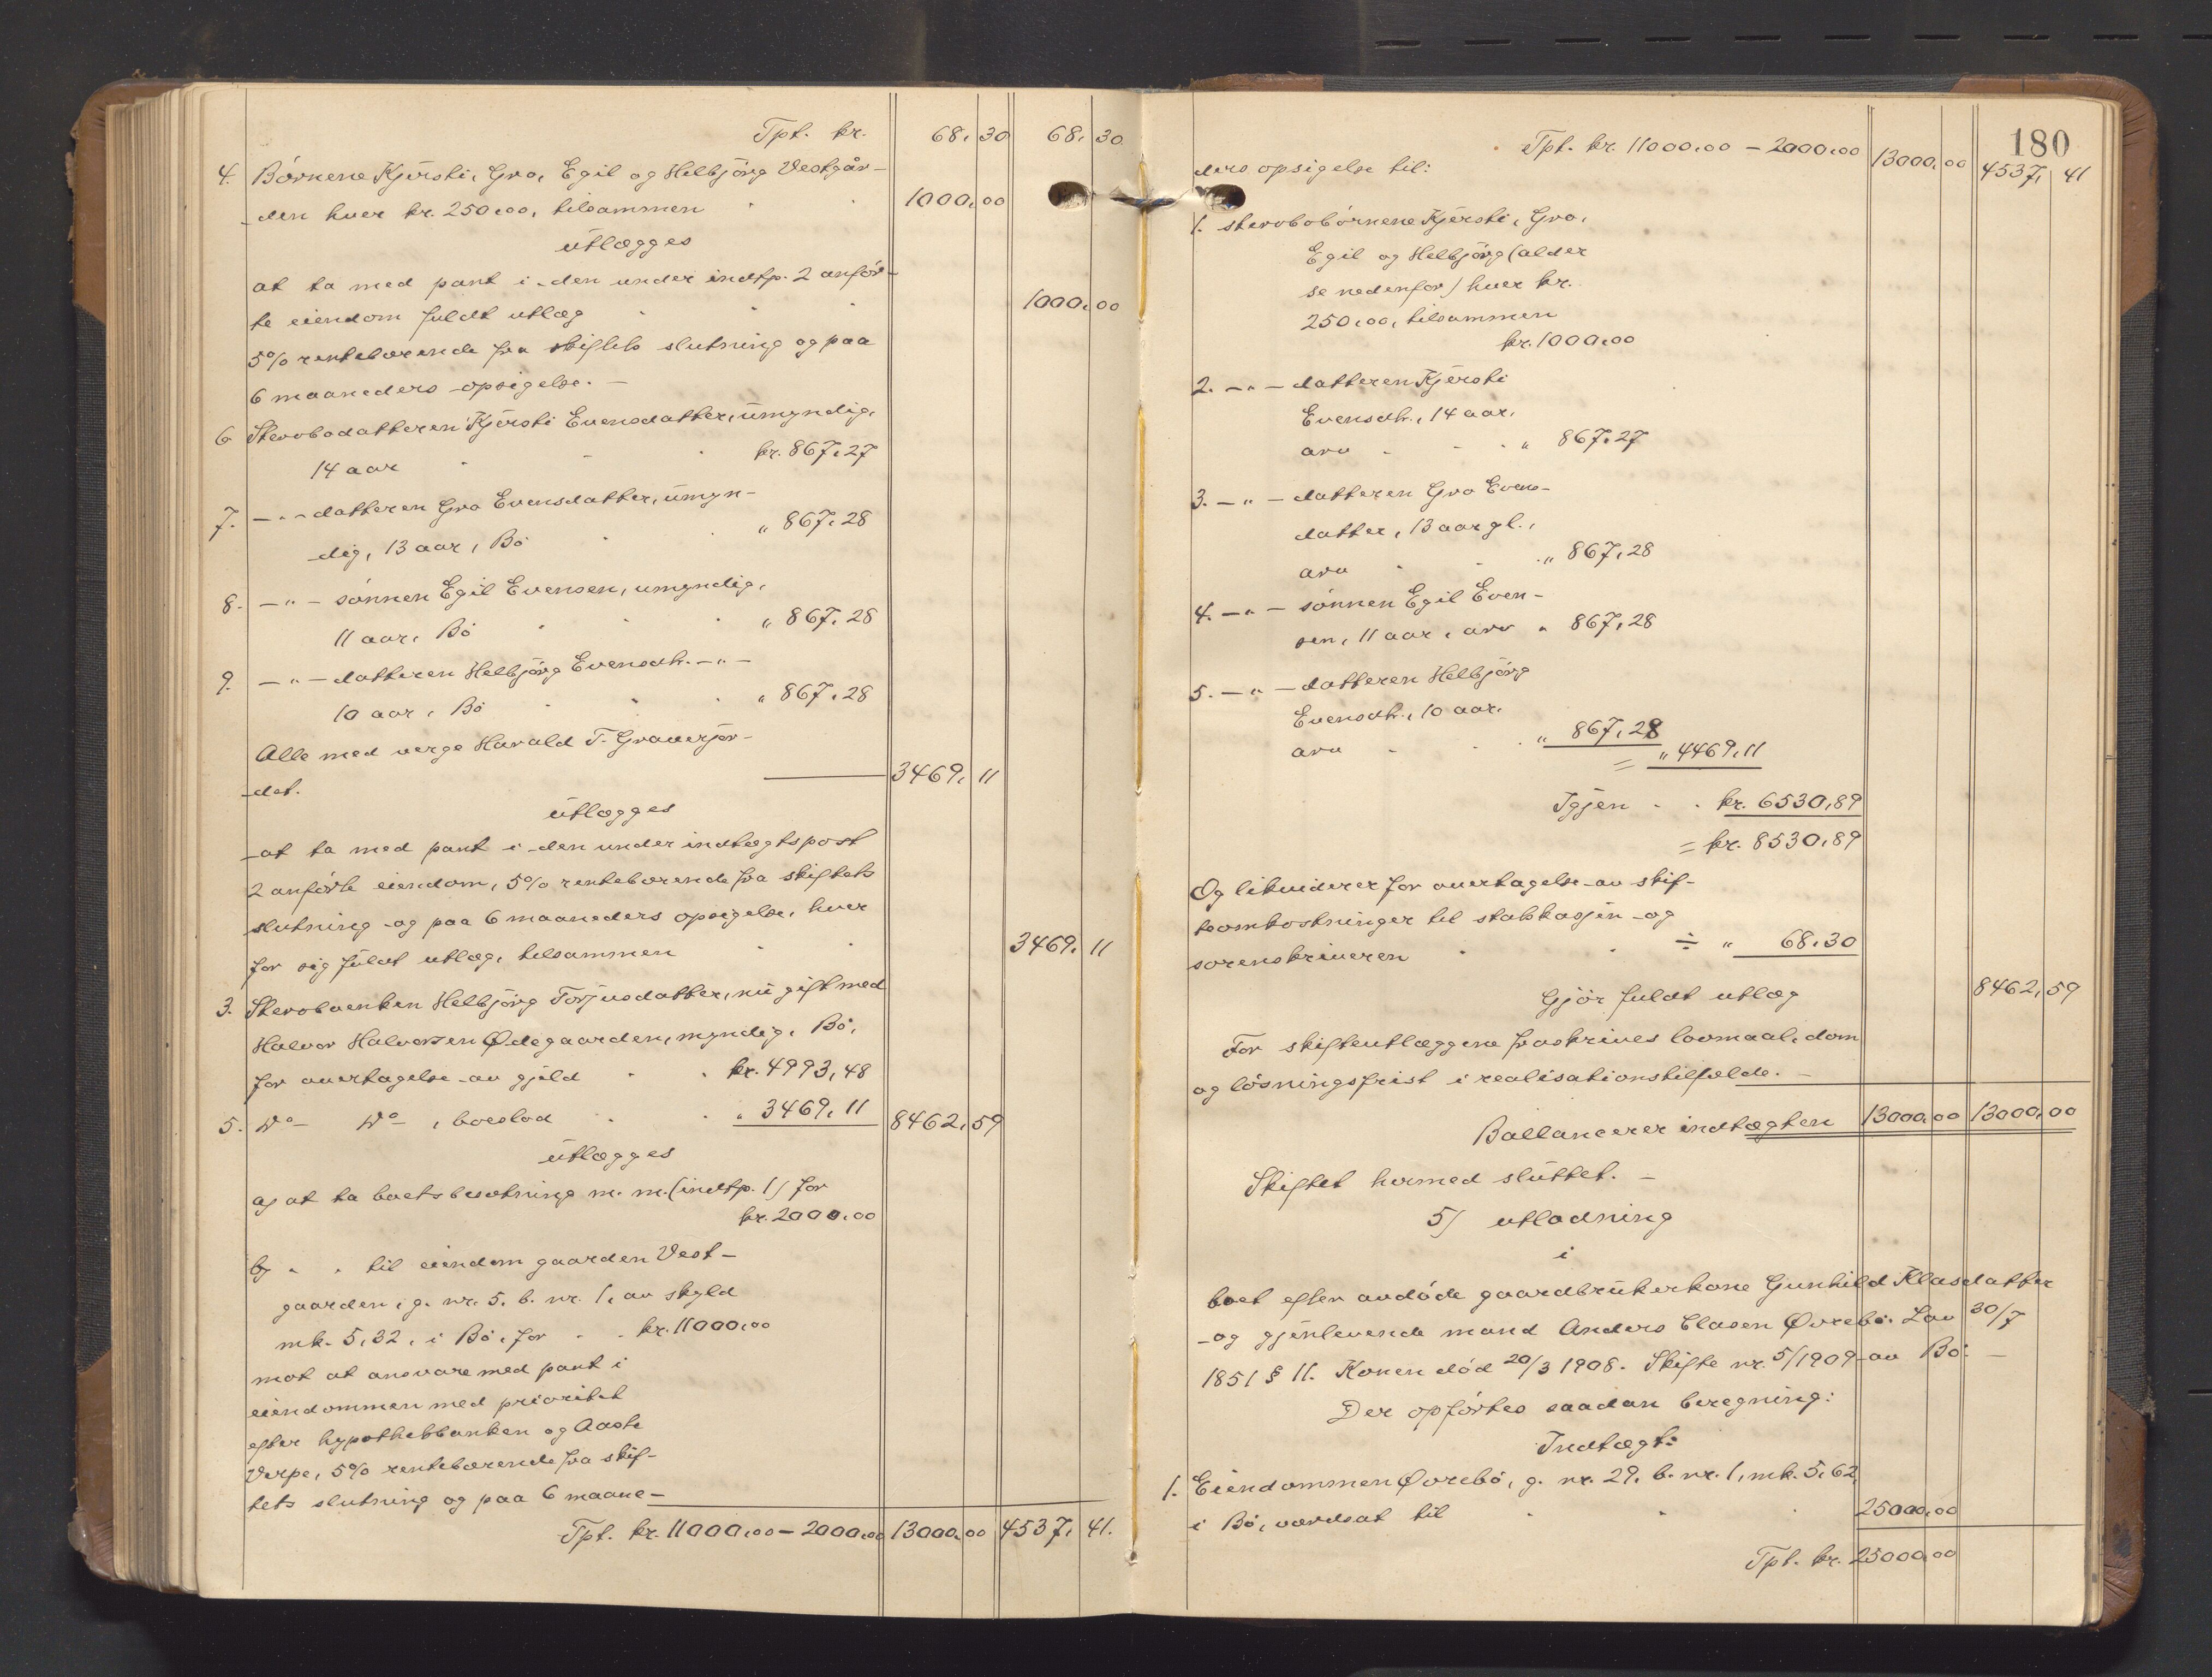 Tpt. kr. 68,30 68,30
4. Börnene Kjersti, Gro, Egil og Helbjörg Vestgår-
den hver kr. 250,00, tilsammen 1000,00
utlægges
at ta med pant i den under indtp. 2 anför-
te eiendom fuldt utlæg 1000,00
5% rentebærende fra skiftets slutning og paa
6 maaneders opsigelse. —
6. Stervbodatteren Kjersti Evensdatter, umyndig,
14 aar kr. 867,27
7. —„— datteren Gro Evensdatter, umyn-
dig, 13 aar, Bö „ 867,28
8. —„— sönnen Egil Evensen, umyndig,
11 aar, Bö „ 867,28
9. —„— datteren Helbjörg Evensdtr. —„—
10 aar, Bö „ 867,28
Alle med verge Harald T. Graverjor-
det. 3469,11
utlægges
at ta med pant i den under indtægtspost
2 anförte eiendom, 5% rentebærende fra skiftets
slutning og paa 6 maaneders opsigelse, hver
for sig fuldt utlæg, tilsammen 3469,11
3. Stervboenken Helbjörg Torjusdatter, nu gift med
Halvor Halvorsen Ødegaarden, myndig, Bö,
for overtagelse av gjeld kr. 4993,48
5. Do Do, boeslod „ 3469,11 8462,59
utlægges
a) at ta boets besætning m. m. (indtp. 1) for
kr. 2000,00
b) „ „ til eiendom gaarden Vest-
gaarden, g. nr. 5, b. nr. 1, av skyld
mk. 5,32, i Bö, for kr. 11000,00
mot at ansvare med pant i
eiendommen med prioritet
efter hypothekbanken og Aaste
Verpe, 5% rentebærende fra skif-
tets slutning og paa 6 maane-
Tpt. kr. 11000,00 — 2000,00 13000,00 4537,41.
180
Tpt. kr. 11000,00 — 2000,00 13000,00 4537,41
ders opsigelse til:
1. stervbobörnene Kjersti, Gro,
Egil og Helbjörg (alder
se nedenfor) hver kr.
250,00, tilsammen
kr. 1000,00
2. —„— datteren Kjersti
Evensdtr., 14 aar,
arv „ 867,27
3. —„— datteren Gro Evens-
datter, 13 aar gl.,
arv „ 867,28
4. —„— sönnen Egil Even-
sen, 11 aar, arv „ 867,28
5. —„— datteren Helbjörg
Evensdtr., 10 aar,
arv „ 867,28
= „ 4469,11
Igjen kr. 6530,89
= kr. 8530,89
Og likviderer for overtagelse av skif-
teomkostninger til statskassen og
sorenskriveren ÷ „ 68,30
Gjör fuldt utlæg 8462,59
For skifteutlæggene fraskrives lovmaal, dom
og lösningsfrist i realisationstilfælde. —
Ballancerer indtægten 13000,00 13000,00
Skiftet hermed sluttet. —
5) utlodning
i
boet efter avdöde gaardbrukerkone Gunhild Klasdatter
og gjenlevende mand Anders Clasen Øvrebö. Lov 30/7
1851 § 11. Konen död 20/3 1908. Skifte nr. 5/1909 av Bö. —
Der opförtes saadan beregning:
Indtægt:
1. Eiendommen Øvrebö, g. nr. 29, b. nr. 1, mk. 5,62,
i Bö, værdsat til 25000,00
Tpt. kr. 25000,00